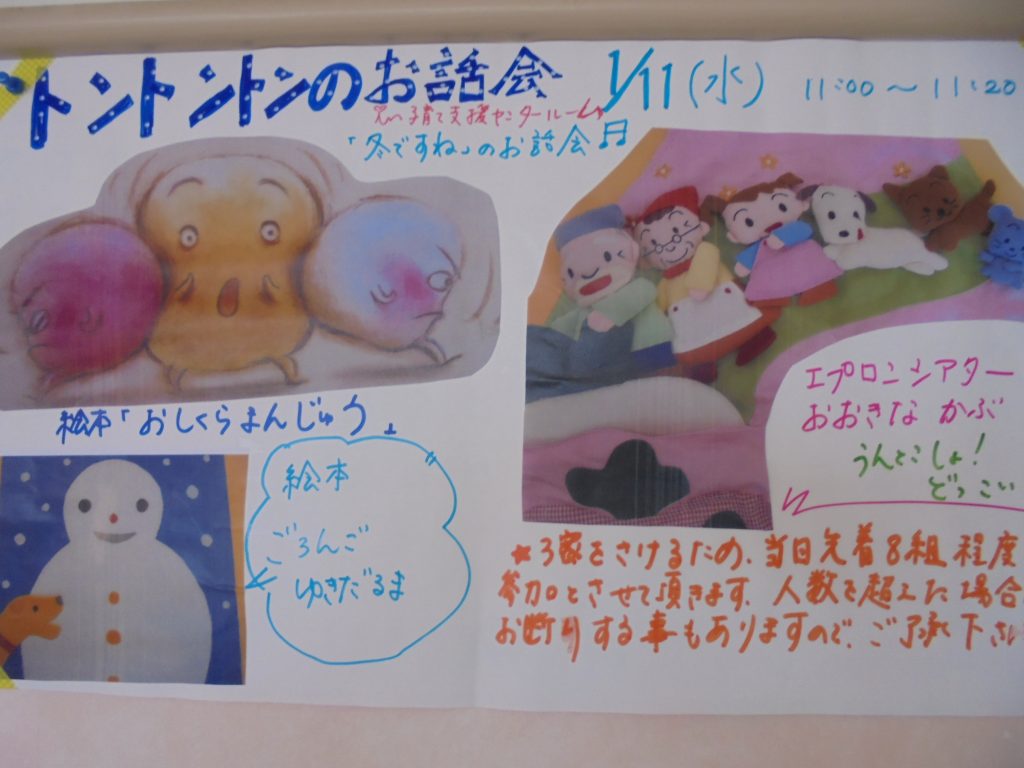 トントントンのお話会 1/11(水) 11:00～11:20
子育て支援センタールーム
「冬ですね」のお話会
絵本「おしくらまんじゅう」
絵本
ごろんご
ゆきだるま
エプロンシアター
おおきな かぶ
うんとこしょ!
どっこい
★3密をさけるため、当日先着8組程度
参加とさせて頂きます。人数を超えた場合
お断りする事もありますので、ご了承下さい